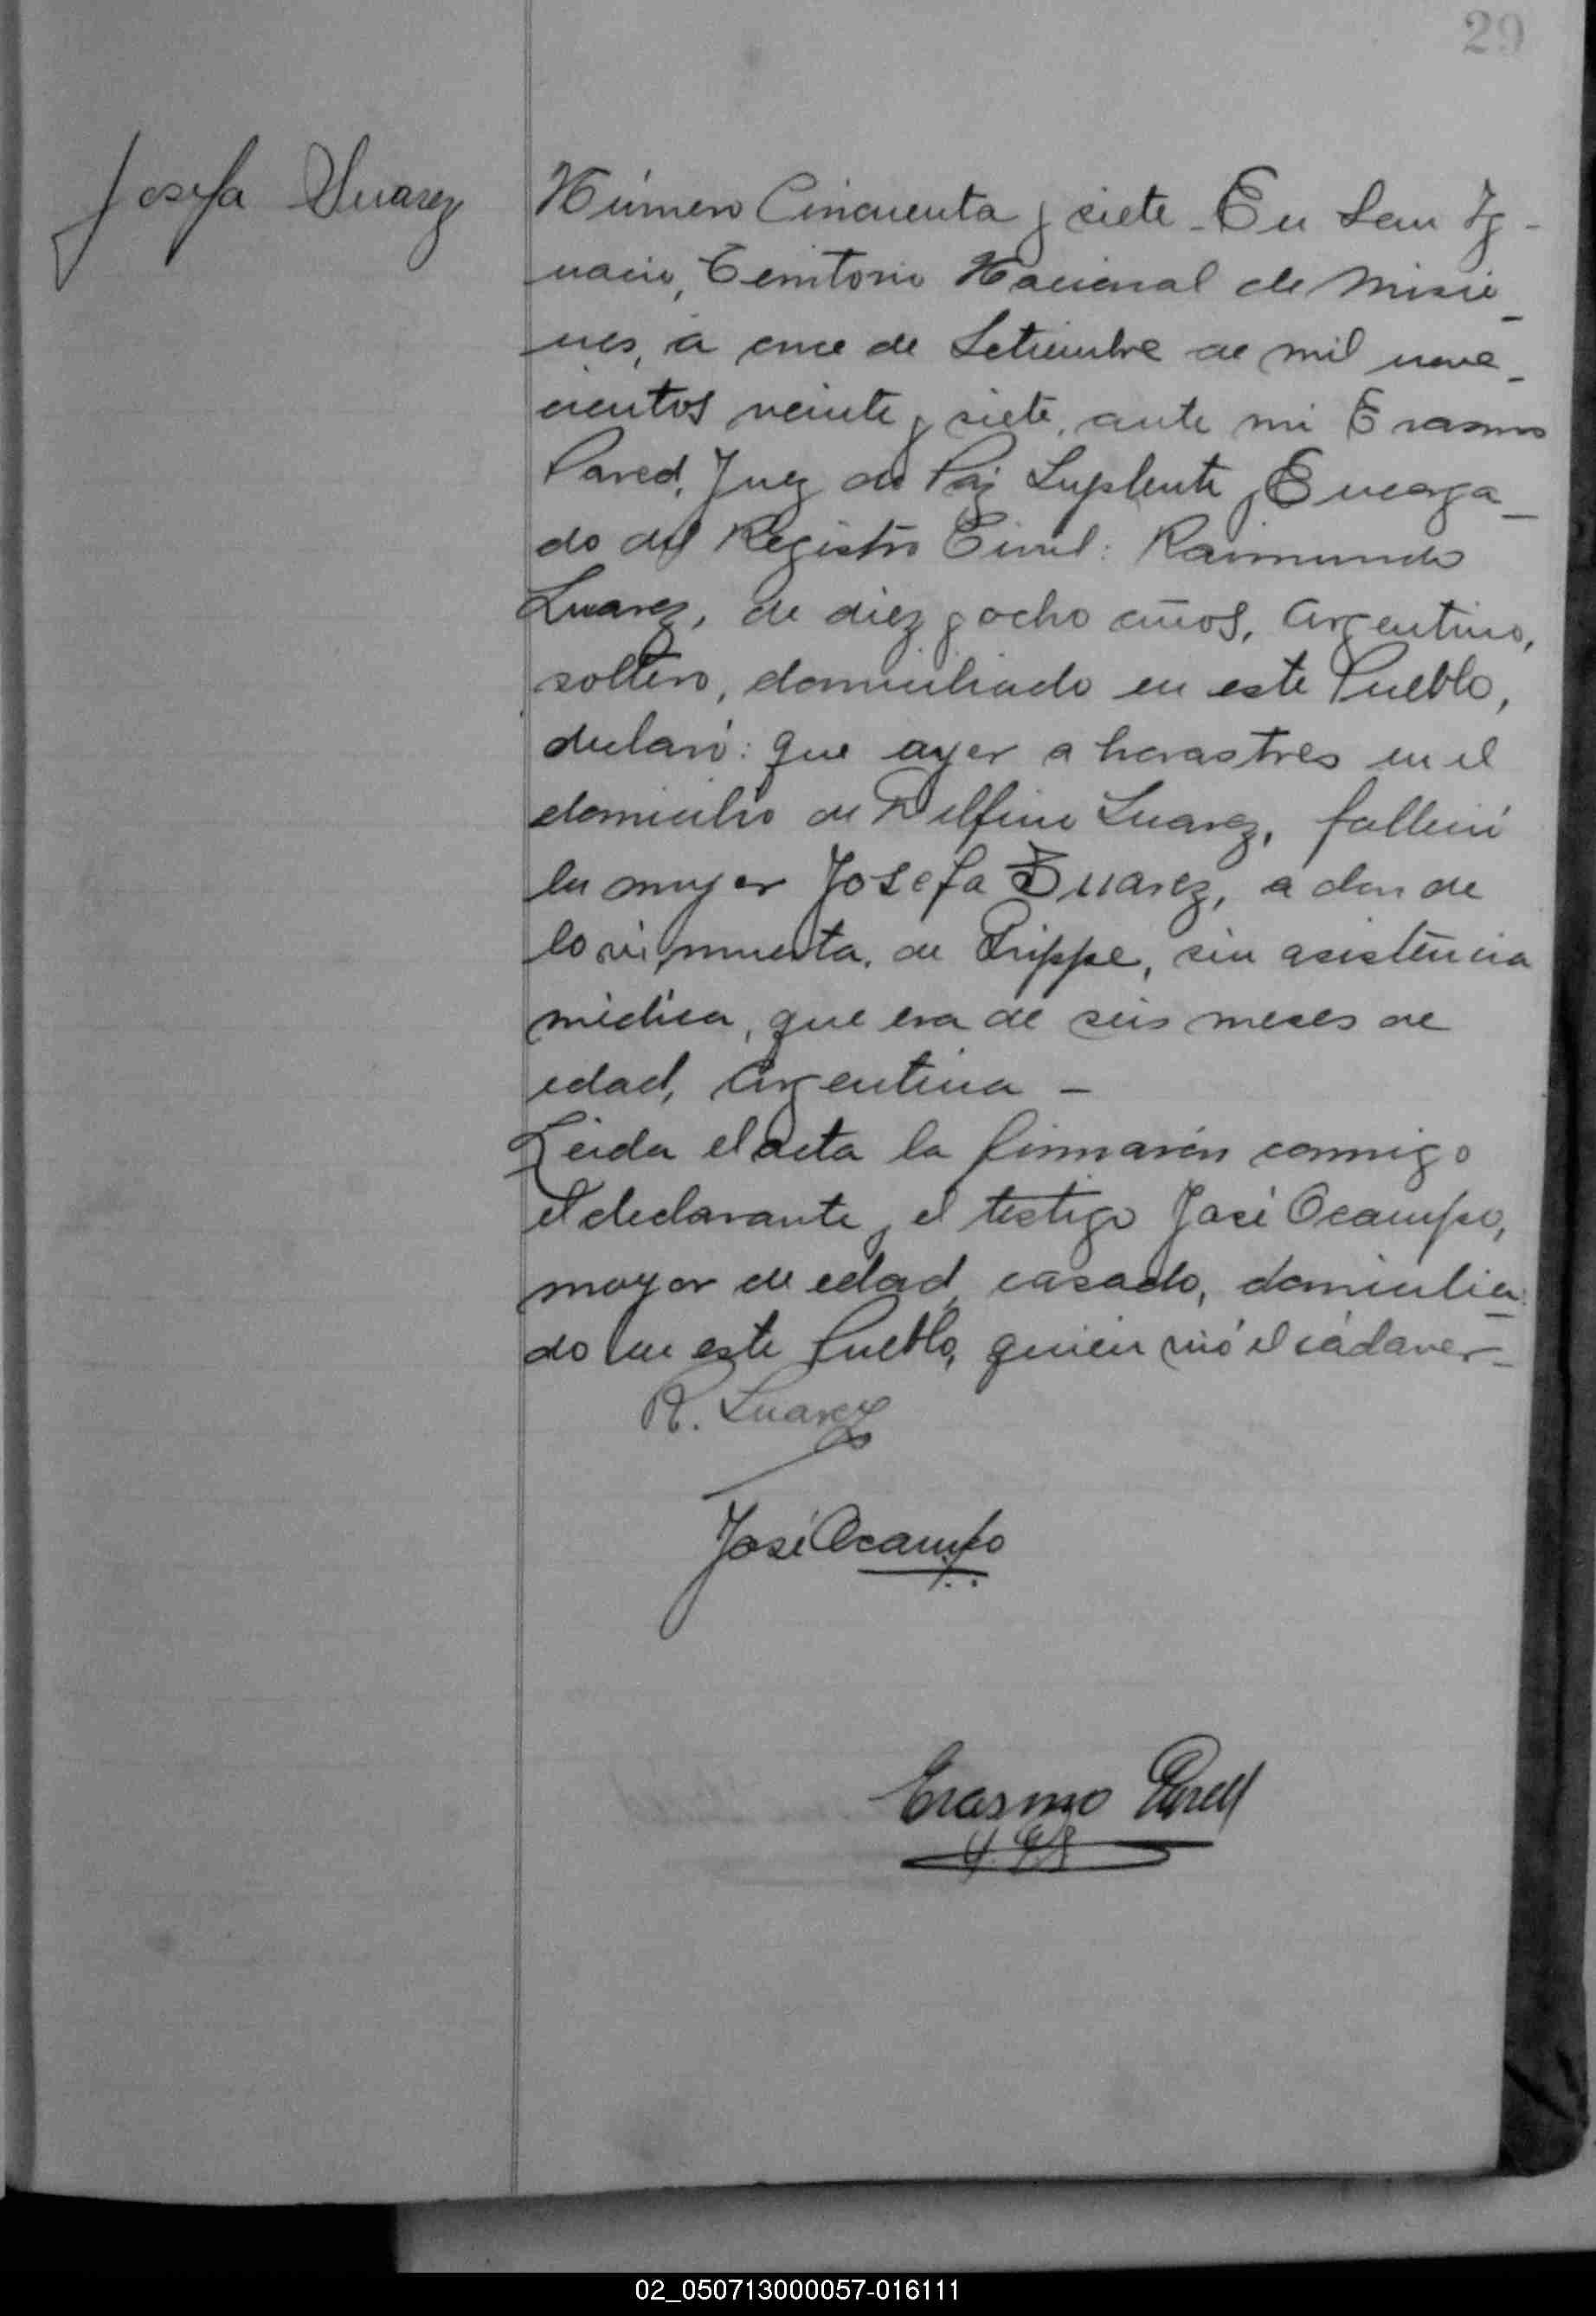 29
Josefa Suarez
Número Cincuenta y siete - En San Ig-
nacio, Territorio Nacional de Misio-
nes, a once de Setiembre de mil nove-
cientos veinte y siete, ante mi Erasmo
Pared, Juez de Paz Suplente y Encarga-
do del Registro Civil: Raimundo
Suarez, de diez y ocho años, Argentino,
soltero, domiciliado en este Pueblo,
declaró: que ayer a horas tres en el
domicilio de Delfin Suarez, falleció
la mujer Josefa Suarez, a donde
lo vi, muerta, de Grippe, sin asistencia
médica, que era de seis meses de
edad, Argentina -
Leida el acta la firmarón conmigo
el declarante y el testigo José Ocampo,
mayor de edad, casado, domicilia-
do en este Pueblo, quien vió el cádaver-
R. Suarez
José Ocampo
Erasmo Pared
02_050713000057-016111